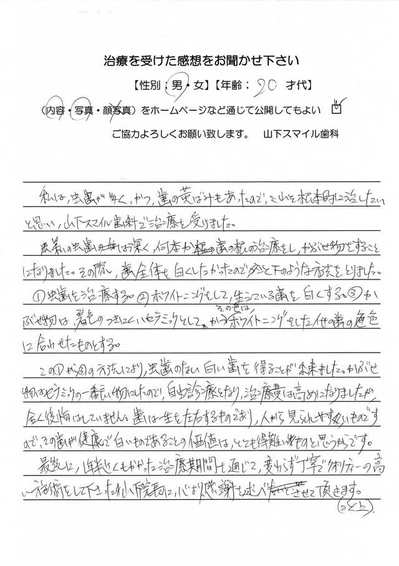 治療を受けた感想をお聞かせ下さい
【性別：男・女】【年齢：20 才代】
（内容・写真・顔写真）をホームページなど通じて公開してもよい ☑
ご協力よろしくお願い致します。 山下スマイル歯科
私は、虫歯が多く、かつ、歯の黄ばみもあったので、これを根本的に治したい
と思い、山下スマイル歯科で治療を受けました。
虫歯は深く、何本か歯の根の治療をし、かぶせ物をすること
になりました。その際、歯全体も白くしたかったので、以下のような方法をとりました。
①虫歯を治療する。②ホワイトニングをして、生えている歯を白くする。③か
ぶせ物は、着色のつきにくいセラミックとして、その色は、かつホワイトニングをした他の歯の色
に合わせたものとする。
この①から③の方法により、虫歯のない白い歯を得ることが出来ました。かぶせ
物はセラミックの一番いい物にしたので、自由診療となり、治療費は高めになりましたが、
全く後悔はしていません。歯は一生をともにするものであり、人から見られやすいものです
ので、その歯が健康で白いものであることの価値は、とても得難いものと思うからです。
最後に、1年近くもかかった治療期間を通じて、変わらず丁寧でクオリティーの高
い施術をして下さった院長に、心より感謝を述べさせて頂きます。
（以上）